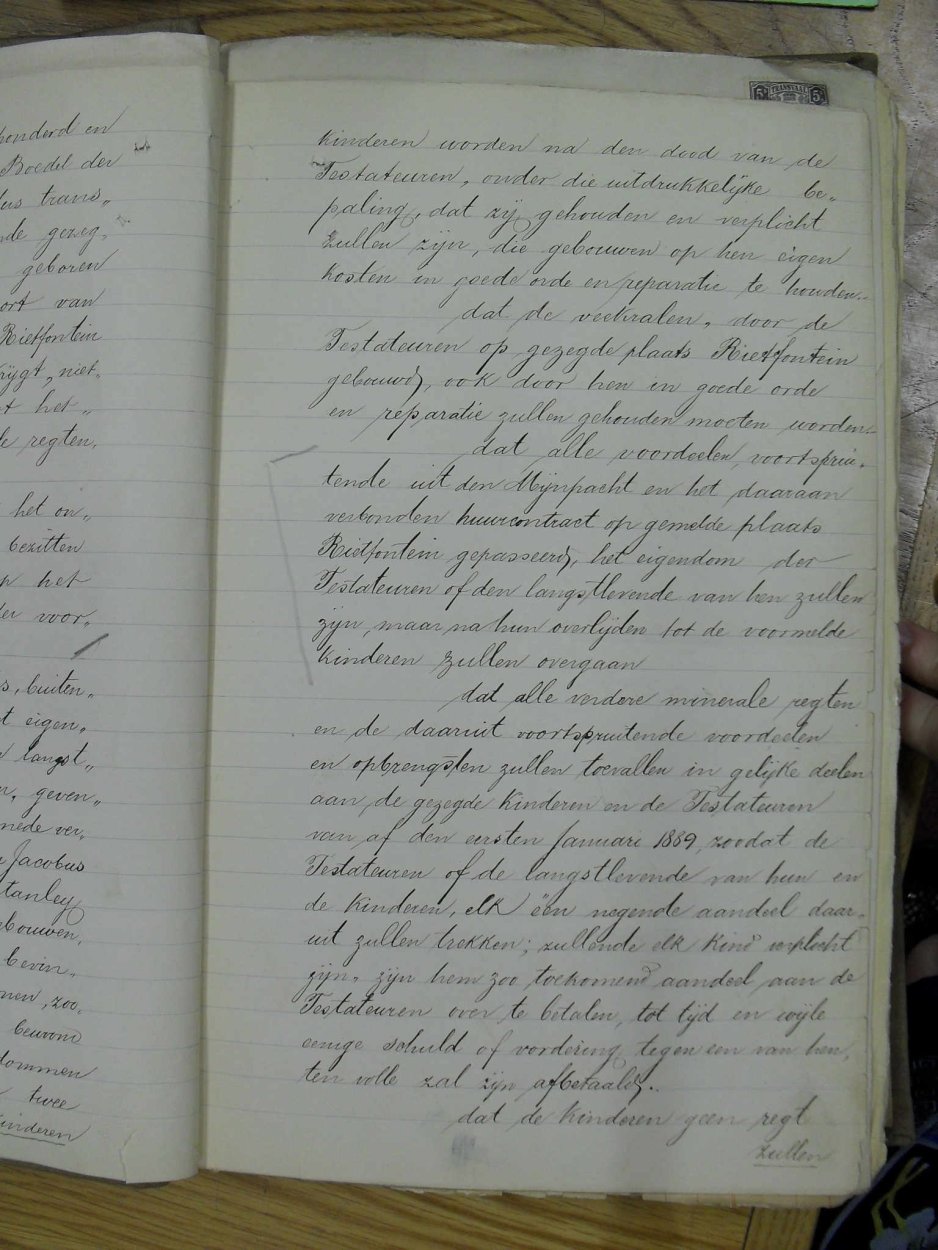 honderd en
Boedel der
us trans„
de gezeg„
geboren
ort van
Rietfontein
rijgt, niet„
t het„
e regten.
het on„
bezitten
p het
der voor„
s, buiten„
t eigen„
langst„
n, geven„
mede ver„
Jacobus
tanley
ebouwen,
bevin„
men, zoo„
bewoond
dommen
twee
kinderen
TRANSVAAL
5/ 5/
kinderen worden na den dood van de
Testateuren, onder die uitdrukkelijke be„
paling, dat zij gehouden en verplicht
zullen zijn, die gebouwen op hen eigen
kosten in goede orde en reparatie te houden.–
dat de veekralen, door de
Testateuren op gezegde plaats Rietfontein
gebouwd, ook door hen in goede orde
en reparatie zullen gehouden moeten worden.–
dat alle voordeelen, voortsprui„
tende uit den Mijnpacht en het daaraan
verbonden huurcontract op gemelde plaats
Rietfontein gepasseerd, het eigendom der
Testateuren of den langstlevende van hen zullen
zijn, maar na hun overlijden tot de voormelde
kinderen zullen overgaan
dat alle verdere minerale regten
en de daaruit voortspruitende voordeelen
en opbrengsten zullen toevallen in gelijke deelen
aan de gezegde Kinderen en de Testateuren
van af den eersten Januari 1889, zoodat de
Testateuren of de langstlevende van hun en
de kinderen, elk één negende aandeel daar„
uit zullen trekken; zullende elk kind verplicht
zijn, zijn hem zoo toekomend aandeel aan de
Testateuren over te betalen, tot tijd en wijle
eenige schuld of vordering tegen een van hen,
ten volle zal zijn afbetaald.
dat de kinderen geen regt
zullen